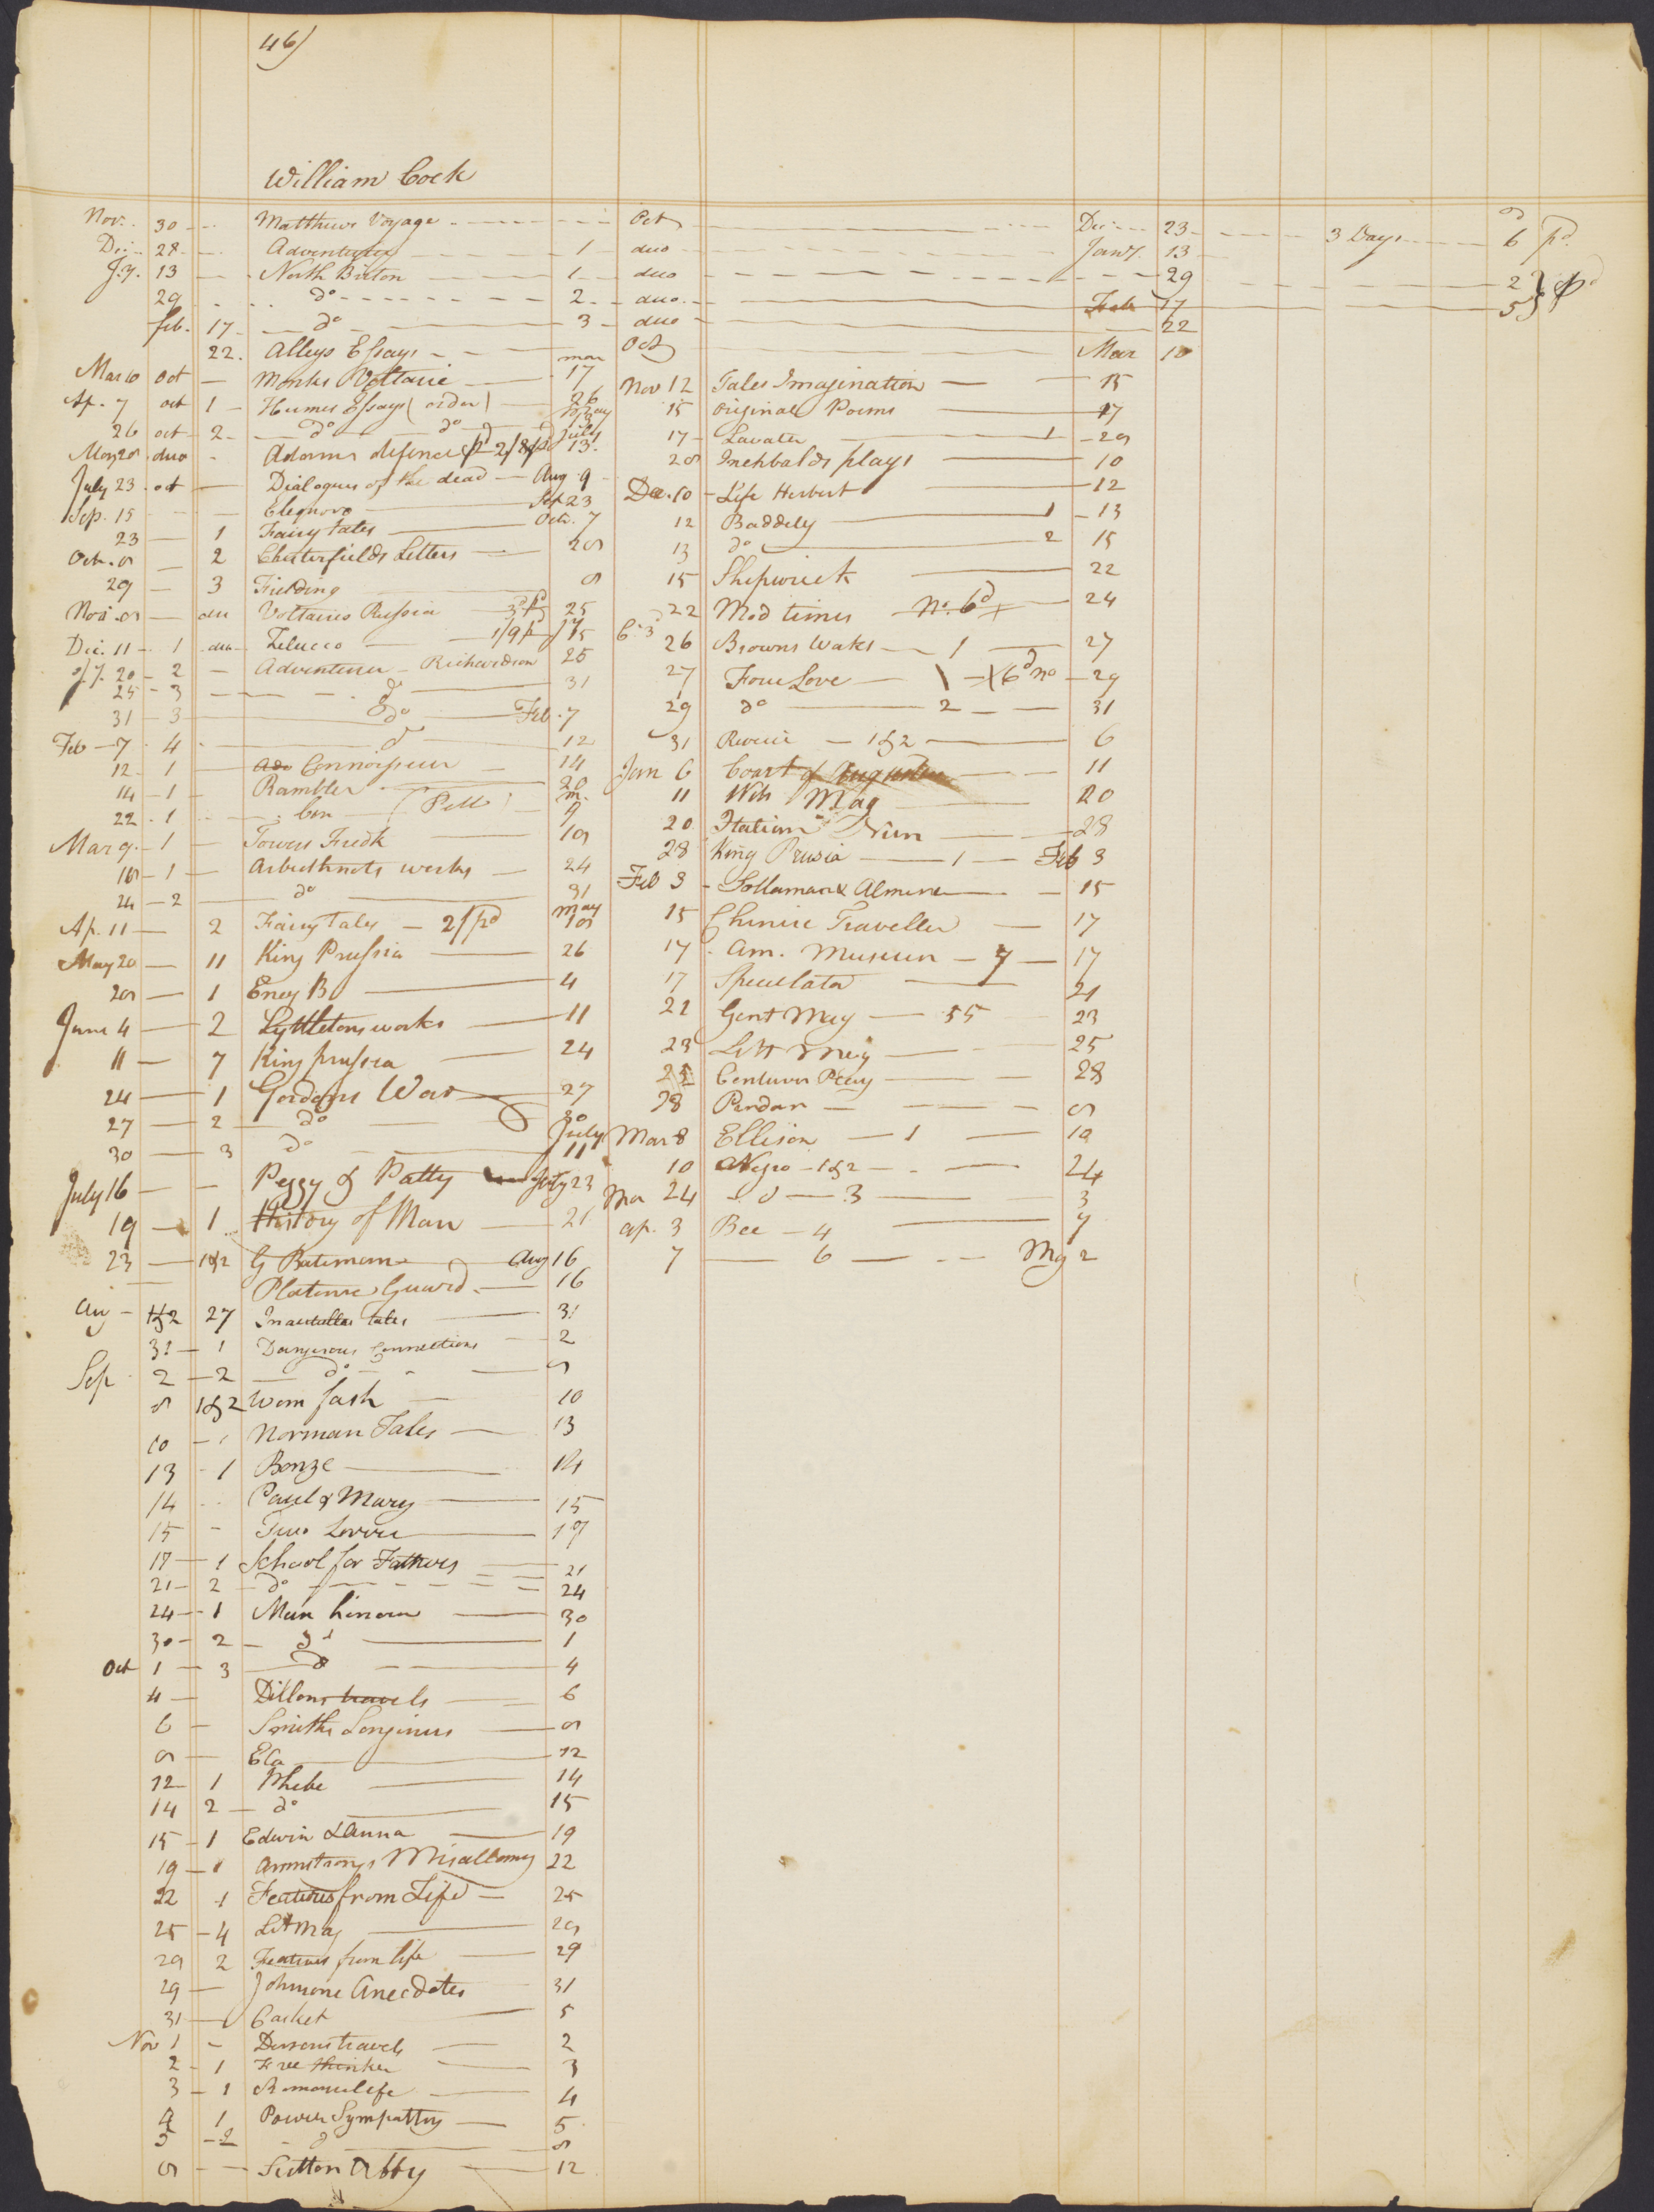 46)
William Cock
Nov. 30 Matthews Voyage Oct Dec 23 3 Days 6 pd
Dec. 28 Adventurer 1 duo Jany. 13
J.y. 13 North Briton 1 duo 29 2
29 do 2 duo Feb 17 5
feb. 17 do 3 duo 22
22. Alleys Essays Oct Mar 10
Mar 10 Oct Works Voltaire mar 17
Ap. 7 oct 1 Humes Essays (order) 26
26 oct 2 do do May
May 28 duo Adams defence pd 2/8 July 13.
July 23 oct Dialogues of the dead Aug 9
Sep. 15 Sep 23
23 1 Fairy tales Oct. 7
Oct. 8 2 Chesterfields Letters 28
29 3 Fielding 8
Nov. 8 duo Voltaires Russia 3d pd 25
Dec. 11 1 duo Zelucco 1/9 pd Jy 15
J.y. 20 2 Adventurer Richardson 25
25 3 do 31
31 3 do Feb. 7
Feb 7 4 do 12
12 1 Connoisseur 14
14 1 Rambler 20
22 1 Con (Pell) m. 9
Mar 9 1 Towers Fredk 18
18 1 Arbuthnots works 24
24 2 do 31
Ap. 11 2 Fairy tales 2/ pd may 18
May 20 11 King Prussia 26
28 1 Ency B 4
June 4 2 Lyttletons works 11
11 7 King prussia 24
24 1 Gordons War 27
27 2 do 30
30 3 do July 11
July 16 Peggy & Patty July 23
19 1 History of Man 21
23 1&2 G Bateman Aug 16
Guard 16
Aug 1&2 27 tales 31
31 1 Dangerous Connections 2
Sep 2 2 do 8
8 1&2 Wom fash 10
10 1 Norman Tales 13
13 1 Bonze 14
14 Paul & Mary 15
15 Two 17
17 1 School for Fathers 21
21 2 do 24
24 1 Man honour 30
30 2 do 1
Oct 1 3 do 4
4 Dillons travels 6
6 Smiths Longinus 8
8 12
12 1 Phebe 14
14 2 do 15
15 1 Edwin & Anna 19
19 1 Armstrongs Misallamy 22
22 1 Features from Life 25
25 4 Litt Mag 28
29 2 Features from life 29
29 Johnsons Anecdotes 31
31 Casket 5
Nov 1 travels 2
2 1 Free thinker 3
3 1 Romance life 4
4 1 Power Sympathy 5
5 2 do 8
8 Sutton Abby 12
Nov 12 Tales Imagination 15
15 Original Poems 17
17 Lavater 1 28
28 Inchbalds plays 10
Dec. 10 Life Herbert 12
12 Baddely 1 13
13 do 2 15
15 Shipwreck 22
22 Mod times No. 6d 24
26 Browns Wates 1 27
27 Four Love 1 6d no 29
29 do 2 31
31 Reverie 1&2 6
Jan 6 Court of Augustus 11
11 Wits Mag 20
20 Italian Nun 28
28 King Prusia 1 Feb 3
Feb 3 Sollaman & Almena 15
15 Chinese Traveller 17
17 Am. Museum 7 17
17 Speculator 21
22 Gent Mag 55 23
23 Litt Mag 25
25 28
28 Pindar 8
Mar 8 Ellison 1 10
10 Negro 1&2 24
Mar 24 do 3 3
ap. 3 Bee 4 7
7 6 My 2